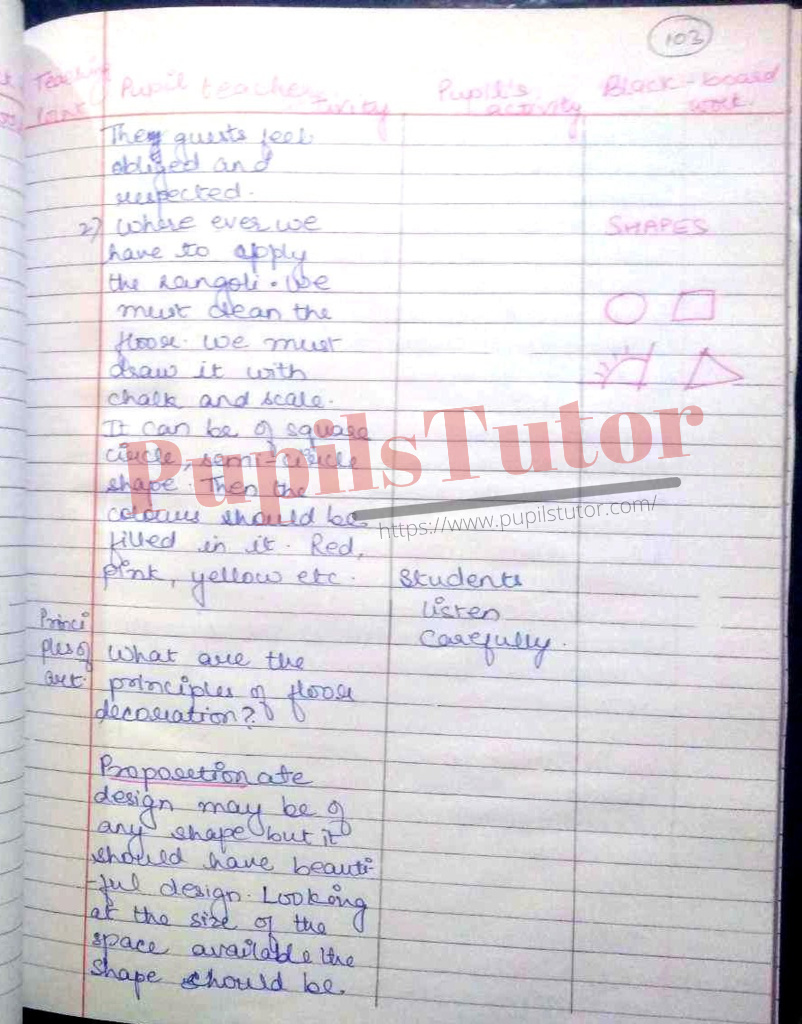 103
Teaching Point
Pupil teacher's activity
Pupil's activity
Black-board work.
They guests feel
obliged and
respected.
2) Where ever we
have to apply
the rangoli. We
must clean the
floor. We must
draw it with
chalk and scale.
It can be of square
circle, semi-circle
shape. Then the
colours should be
filled in it. Red,
pink, yellow etc.
Students
listen
carefully.
SHAPES
Princi
ples of
art.
What are the
principles of floor
decoration?
Proposetionate
design may be of
any shape but it
should have beauti-
-ful design. Looking
at the size of the
space available the
shape should be.
PupilsTutor
https://www.pupilstutor.com/